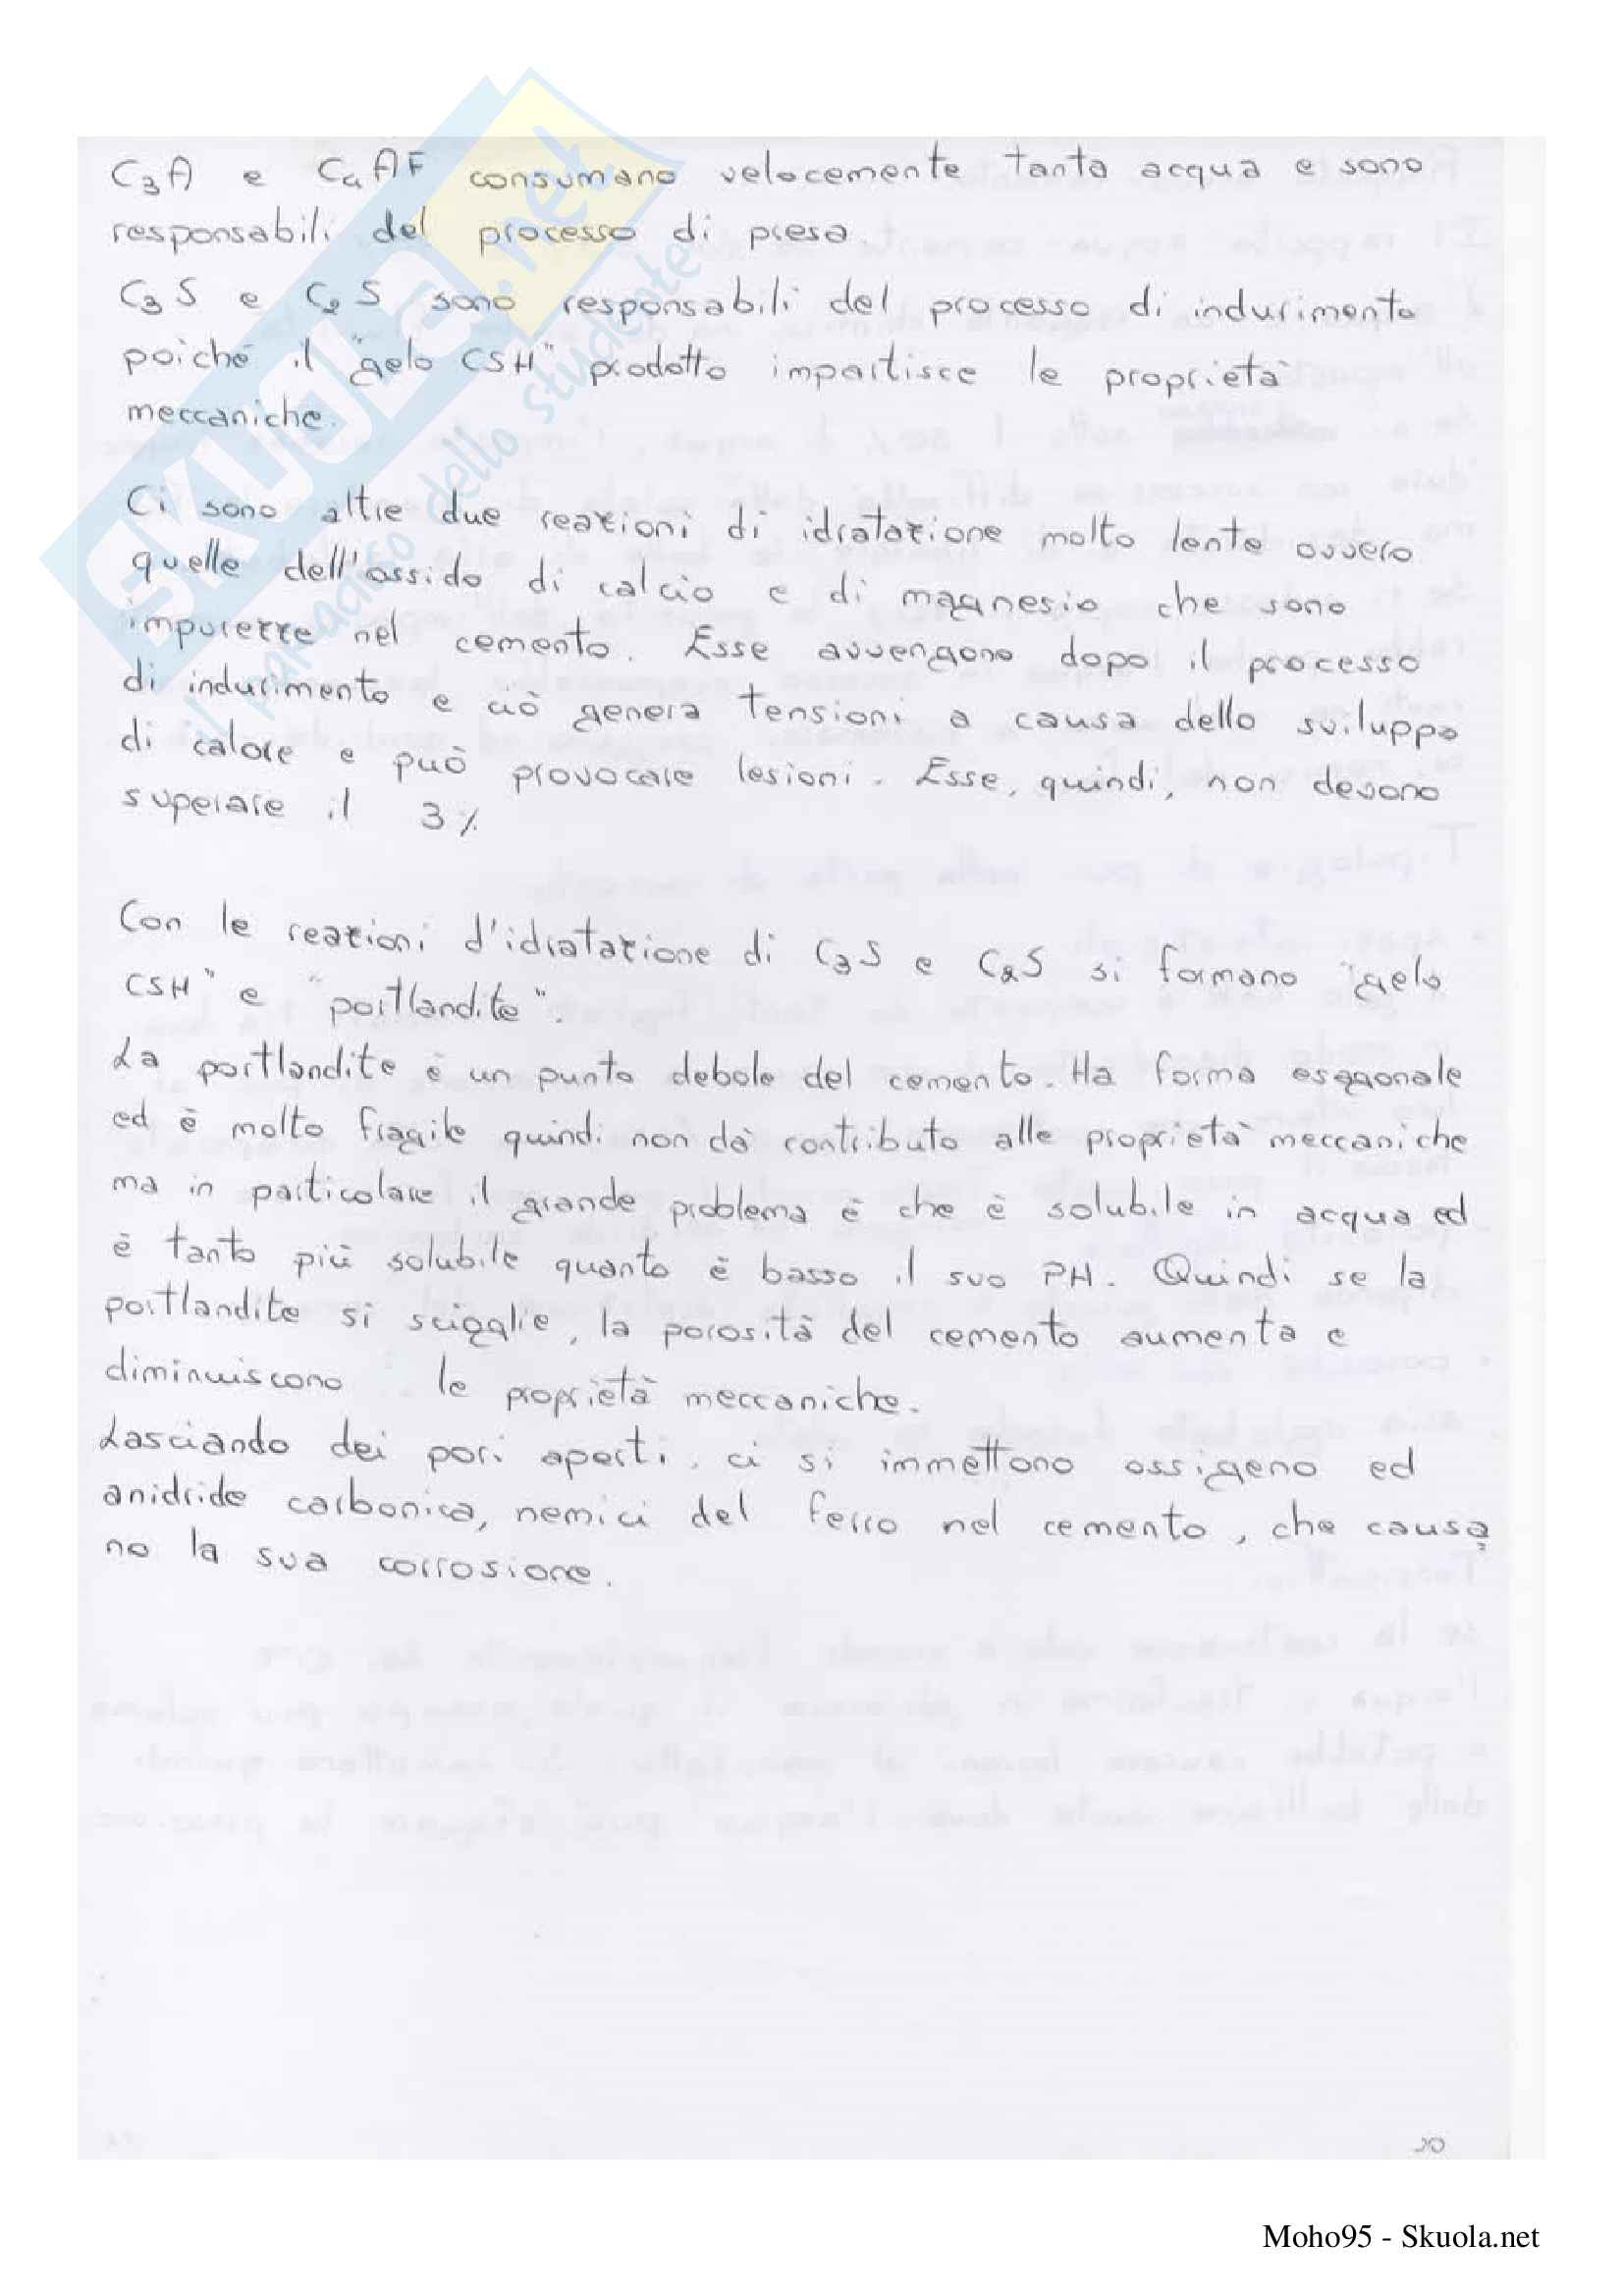 C3A e C4AF consumano velocemente tanta acqua e sono
responsabili del processo di presa
C3S e C2S sono responsabili del processo di indurimento
poiché il "gelo CSH" prodotto impartisce le proprietà
meccaniche.
Ci sono altre due reazioni di idratazione molto lente ovvero
quelle dell'ossido di calcio e di magnesio che sono
impurezze nel cemento. Esse avvengono dopo il processo
di indurimento e ciò genera tensioni a causa dello sviluppo
di calore e può provocare lesioni. Esse, quindi, non devono
superare il 3%
Con le reazioni d'idratazione di C3S e C2S si formano "gelo
CSH" e "portlandite".
La portlandite è un punto debole del cemento. Ha forma esagonale
ed è molto fragile quindi non dà contributo alle proprietà meccaniche
ma in particolare il grande problema è che è solubile in acqua ed
è tanto più solubile quanto è basso il suo PH. Quindi se la
portlandite si scioglie, la porosità del cemento aumenta e
diminuiscono le proprietà meccaniche.
Lasciando dei pori aperti, ci si immettono ossigeno ed
anidride carbonica, nemici del ferro nel cemento, che causa
no la sua corrosione.
SKUOLA.net
il paradiso dello studente
Moho95 - Skuola.net